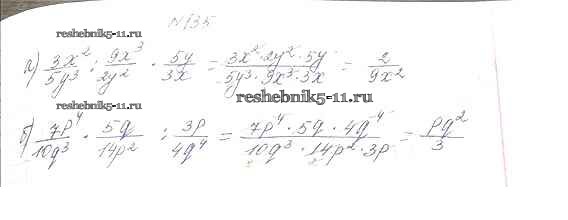 N135
reshebnik5-11.ru
а) 3x²/5y³ : 9x³/2y² · 5y/3x = 3x²·2y²·5y/5y³·9x³·3x = 2/9x²
reshebnik5-11.ru
reshebnik5-11.ru
б) 7p⁴/10q³ · 5q/14p² : 3p/4q⁴ = 7p⁴·5q·4q⁴/10q³·14p²·3p = pq²/3
reshebnik5-11.ru